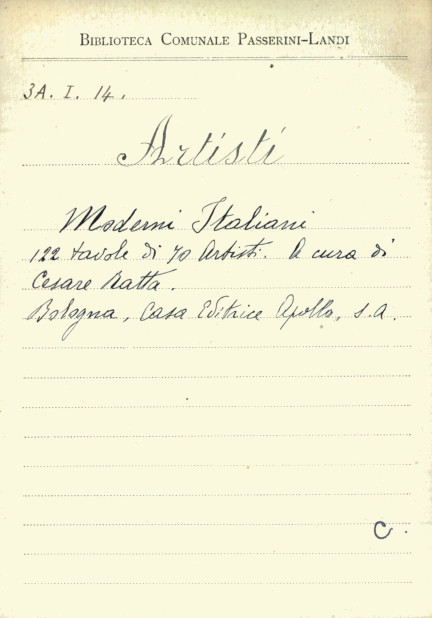 BIBLIOTECA COMUNALE PASSERINI-LANDI
3A. I. 14.
Artisti
Moderni Italiani
122 tavole di 70 Artisti. A cura di
Cesare Ratta.
Bologna, Casa Editrice Apollo, s.a.
C.